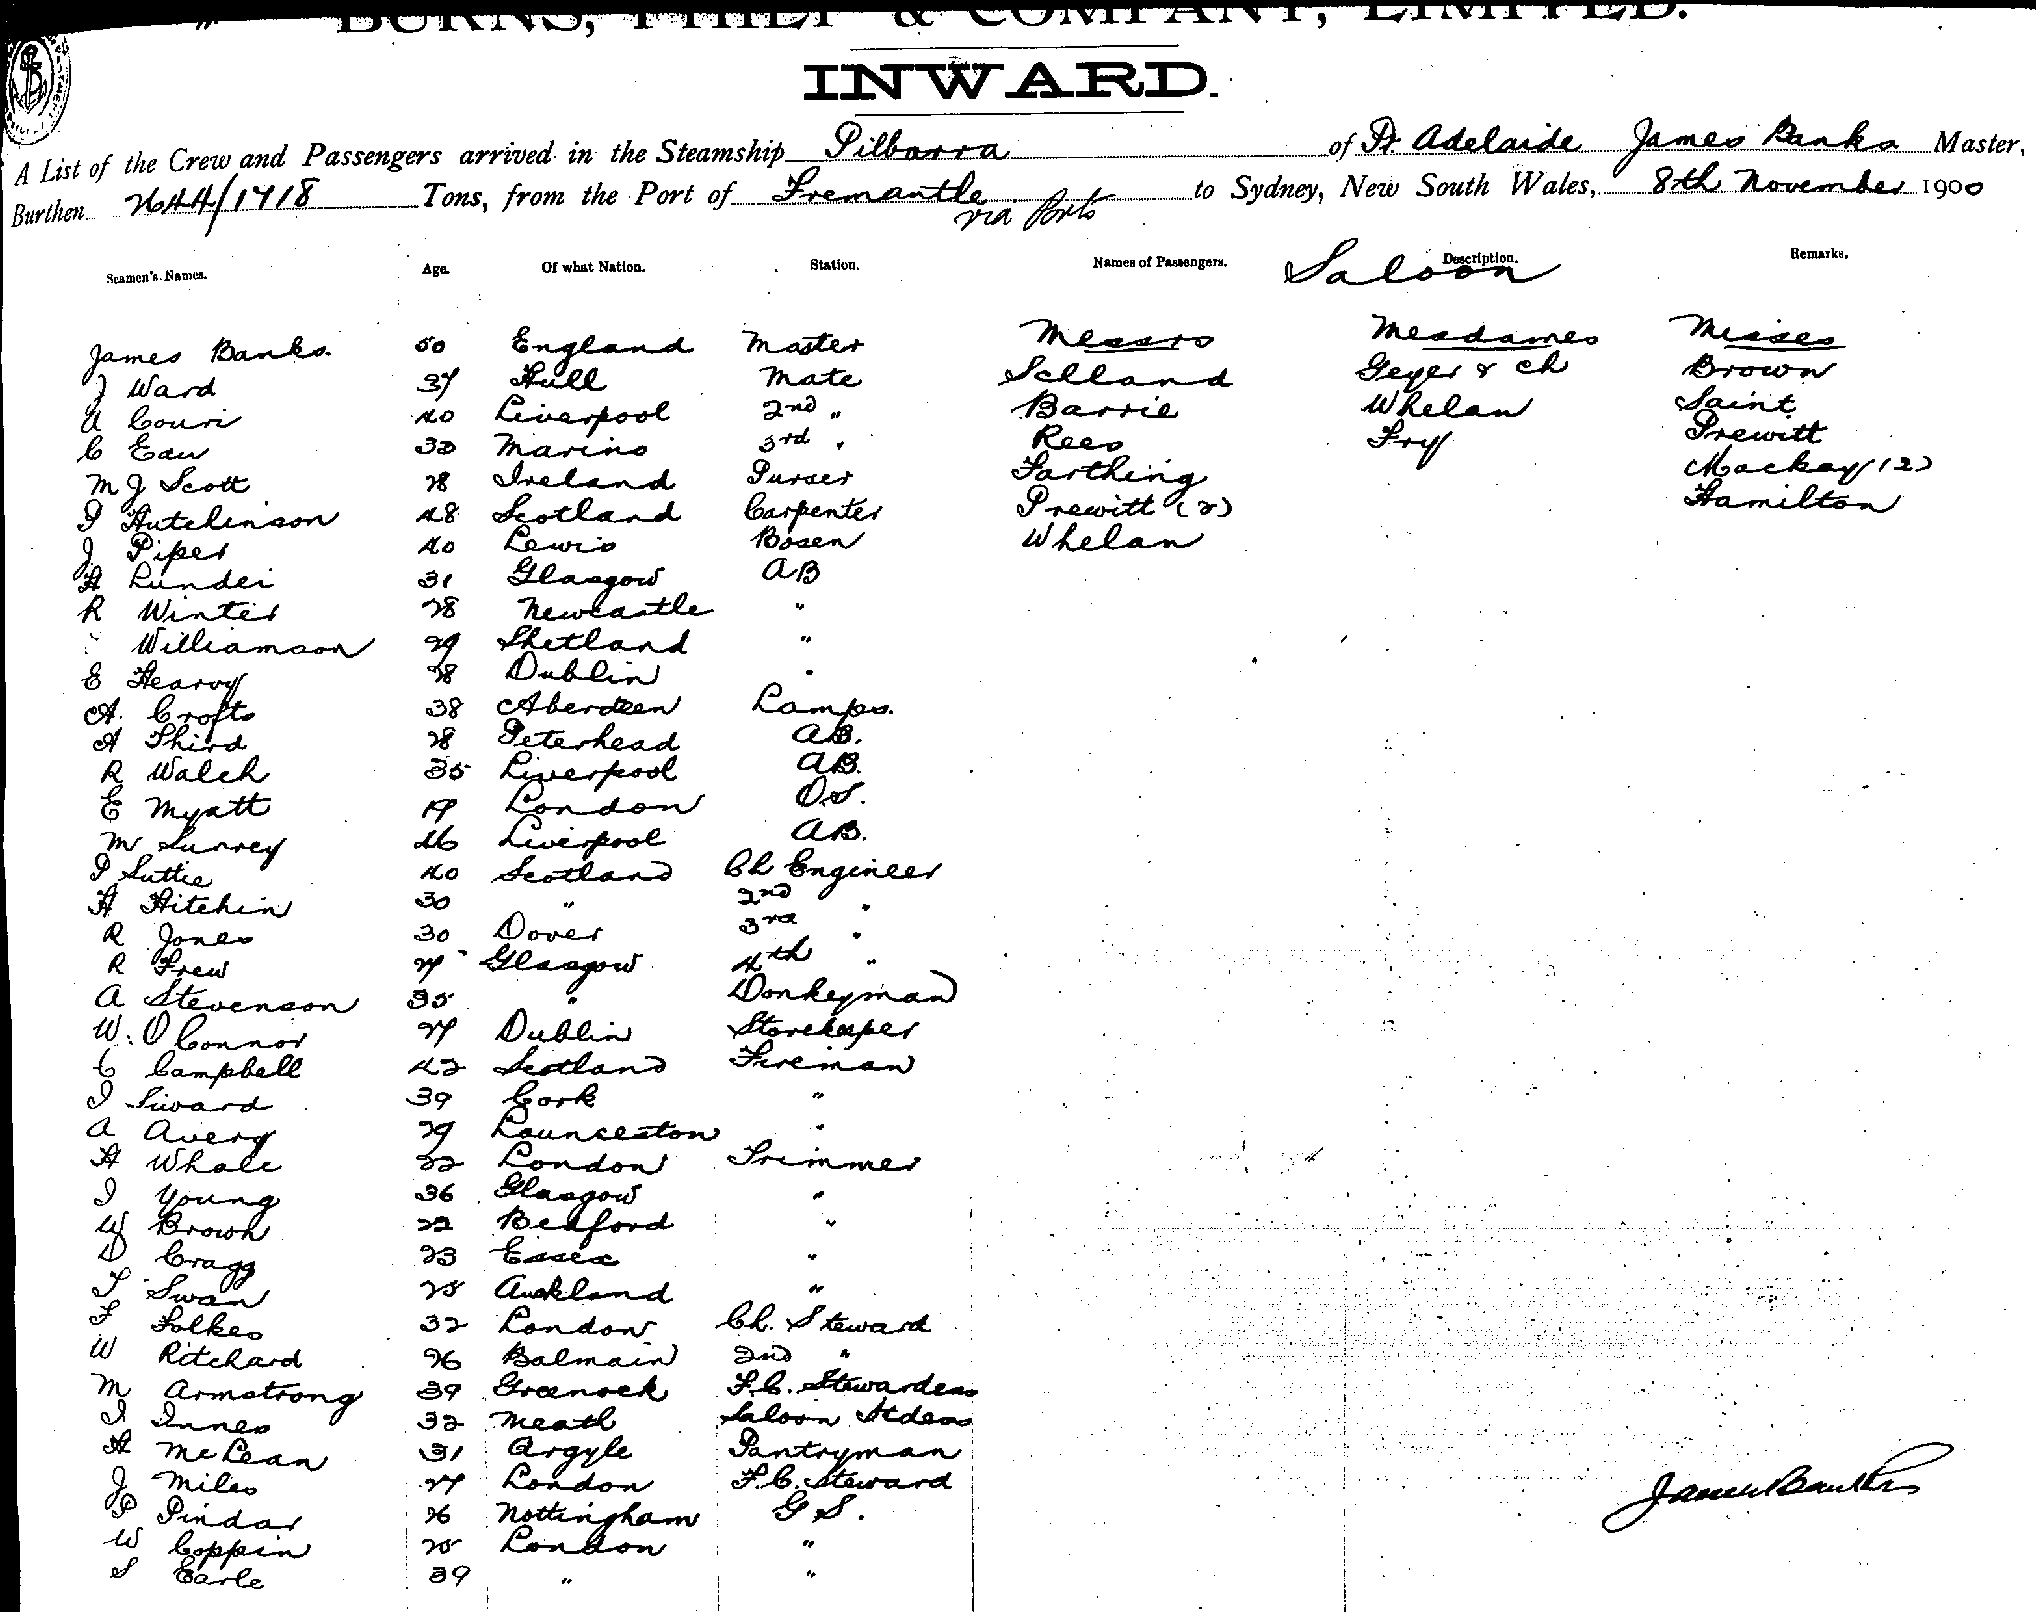 BURNS, PHILP & COMPANY, LIMITED.
INWARD.
A List of the Crew and Passengers arrived in the Steamship Pilbarra of Pt Adelaide James Banks Master,
Burthen 2644/1718 Tons, from the Port of Fremantle via Ports to Sydney, New South Wales, 8th November 1900
Seamen's Names. Age. Of what Nation. Station. Names of Passengers. Description. Remarks.
Saloon
James Banks. 50 England Master Messrs Mesdames Misses
J Ward 37 Hull Mate Selland Geyer & Ch Brown
A Couri 40 Liverpool 2nd " Barrie Whelan Saint
C Eau 32 Marino 3rd " Rees Fry Prewitt
M J Scott 28 Ireland Purser Farthing Mackay (2)
P Hutchinson 48 Scotland Carpenter Prewitt (2) Hamilton
J Piper 40 Lewis Bosen Whelan
H Lundei 31 Glasgow AB
R Winter 28 Newcastle "
Williamson 29 Shetland "
E Hearvy 28 Dublin "
A. Crofts 38 Aberdeen Lamps.
A Third 28 Peterhead AB.
R Walsh 35 Liverpool AB.
E Myatt 19 London O.S.
M Surrey 46 Liverpool AB.
P Suttie 40 Scotland Ch Engineer
H Hitchin 30 " 2nd "
R Jones 30 Dover 3rd "
R Frew 27 Glasgow 4th "
A Stevenson 35 " Donkeyman
W. O Connor 27 Dublin Storekeeper
C Campbell 42 Scotland Fireman
J Siward 39 Cork "
A Avery 29 Launceston "
H Whale 22 London Trimmer
J Young 36 Glasgow "
W Brown 22 Bedford "
D Cragg 23 Essex "
T Swan 25 Auckland "
F Folkes 32 London Ch. Steward
W Ritchard 26 Balmain 2nd "
M Armstrong 39 Greenock F.C. Stewardess
J Innes 32 Meath Saloon Stdess
H McLean 31 Argyle Pantryman
J Miles 27 London F.C. Steward
P Pindar 26 Nottingham G S.
W Coppin 25 London "
S Earle 39 " "
James Banks